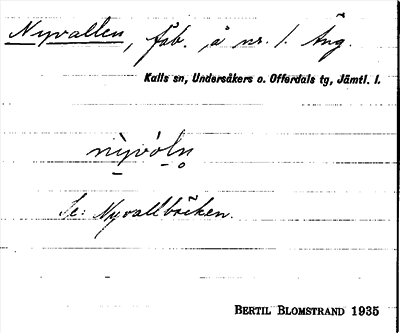 Nyvallen, fäb. å nr. 1. Äng.
Kalls sn, Undersåkers o. Offerdals tg, Jämtl. l.
nyvòln
Se: Nyvallbäcken.
BERTIL BLOMSTRAND 1935